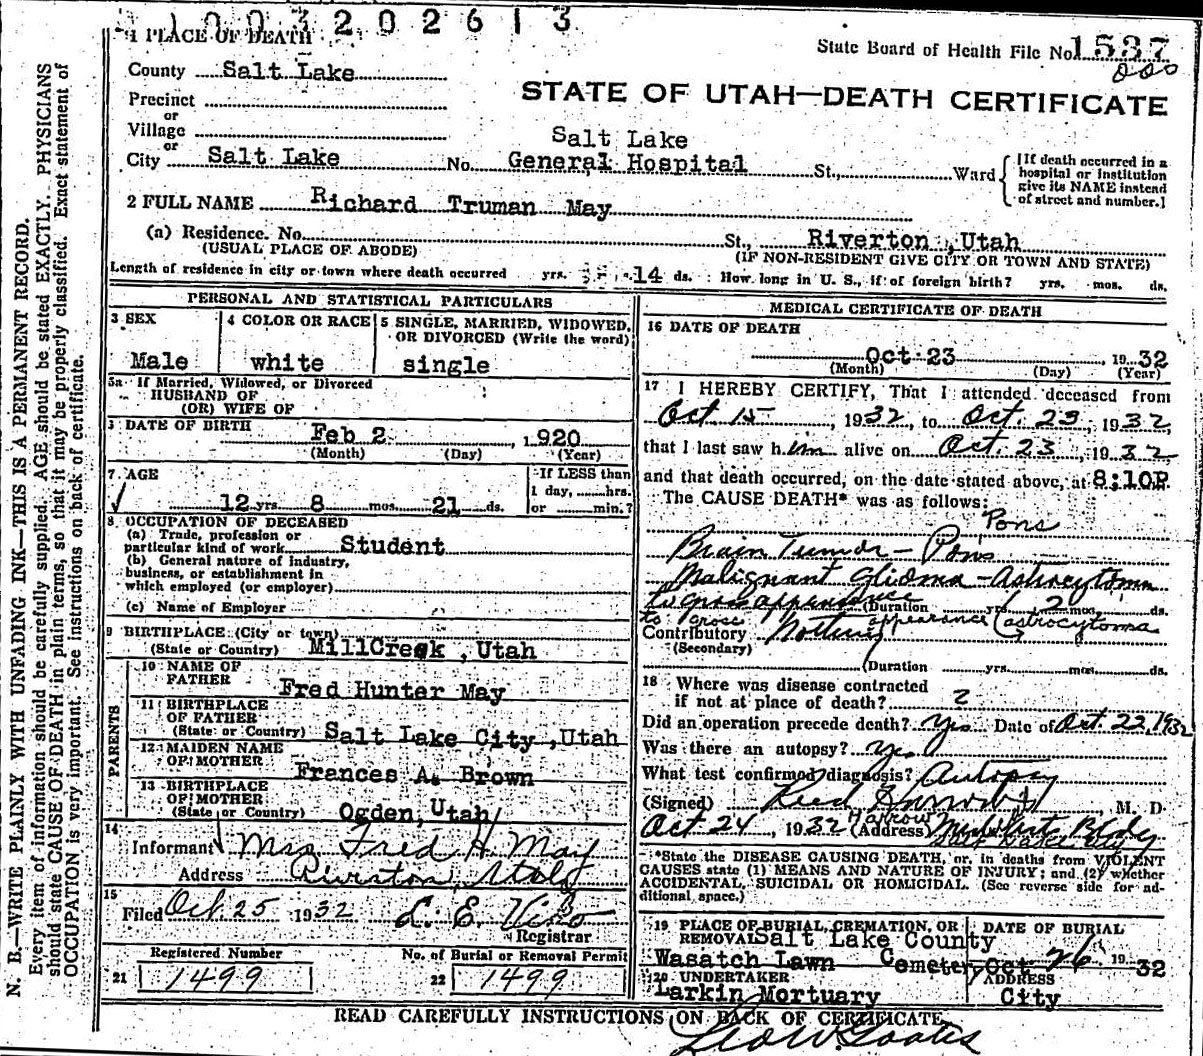 1003202613
1 PLACE OF DEATH
State Board of Health File No. 1537
County Salt Lake
STATE OF UTAH—DEATH CERTIFICATE
Precinct
or
Village
or
Salt Lake
City Salt Lake No. General Hospital St., Ward
[If death occurred in a
hospital or institution
give its NAME instead
of street and number.]
2 FULL NAME Richard Truman May
(a) Residence. No. St., Riverton, Utah
(USUAL PLACE OF ABODE) (IF NON-RESIDENT GIVE CITY OR TOWN AND STATE)
Length of residence in city or town where death occurred yrs. 14 ds. How long in U. S., if of foreign birth? yrs. mos. ds.
PERSONAL AND STATISTICAL PARTICULARS
3 SEX
Male
4 COLOR OR RACE
white
5 SINGLE, MARRIED, WIDOWED,
OR DIVORCED (Write the word)
single
5a If Married, Widowed, or Divorced
HUSBAND OF
(OR) WIFE OF
DATE OF BIRTH
Feb 2, 1920
(Month) (Day) (Year)
7 AGE
12 yrs. 8 mos. 21 ds.
If LESS than
1 day, hrs.
or min.?
8 OCCUPATION OF DECEASED
(a) Trade, profession or
particular kind of work Student
(b) General nature of industry,
business, or establishment in
which employed (or employer)
(c) Name of Employer
9 BIRTHPLACE (City or town)
(State or Country) MillCreek, Utah
PARENTS
10 NAME OF
FATHER Fred Hunter May
11 BIRTHPLACE
OF FATHER
(State or Country) Salt Lake City, Utah
12 MAIDEN NAME
OF MOTHER Frances A. Brown
13 BIRTHPLACE
OF MOTHER
(State or Country) Ogden, Utah
14
Informant Mrs Fred H. May
Address Riverton, Utah
15
Filed Oct. 25 1932 L. E.
Registrar
Registered Number
21 1499
No. of Burial or Removal Permit
22 1499
MEDICAL CERTIFICATE OF DEATH
16 DATE OF DEATH
Oct 23 1932
(Month) (Day) (Year)
17 I HEREBY CERTIFY, That I attended deceased from
Oct 15, 1932, to Oct. 23, 1932,
that I last saw him alive on Oct. 23, 1932,
and that death occurred, on the date stated above, at 8:10P
The CAUSE DEATH* was as follows:
Pons
Brain Tumor - Pons
Malignant Glioma - Astrocytoma
to gross appearance (Duration yrs. 2 mos. ds.
to gross appearance (astrocytoma
Contributory Nothing
(Secondary)
(Duration yrs. mos. ds.
18 Where was disease contracted
if not at place of death? ?
Did an operation precede death? Yes Date of Oct. 22, 1932
Was there an autopsy? Yes
What test confirmed diagnosis? Autopsy
(Signed) Reed Harrow M. D.
Harrow
Oct 24, 1932 (Address) Bldg
Salt Lake City
*State the DISEASE CAUSING DEATH, or, in deaths from VIOLENT
CAUSES state (1) MEANS AND NATURE OF INJURY; and (2) whether
ACCIDENTAL, SUICIDAL OR HOMICIDAL. (See reverse side for ad-
ditional space.)
19 PLACE OF BURIAL, CREMATION, OR
REMOVAL Salt Lake County
Wasatch Lawn Cemetery
DATE OF BURIAL
Oct 26 1932
20 UNDERTAKER
Larkin Mortuary
ADDRESS
City
READ CAREFULLY INSTRUCTIONS ON BACK OF CERTIFICATE
N. B.—WRITE PLAINLY WITH UNFADING INK—THIS IS A PERMANENT RECORD.
Every item of information should be carefully supplied. AGE should be stated EXACTLY. PHYSICIANS
should state CAUSE OF DEATH in plain terms, so that it may be properly classified. Exact statement of
OCCUPATION is very important. See instructions on back of certificate.